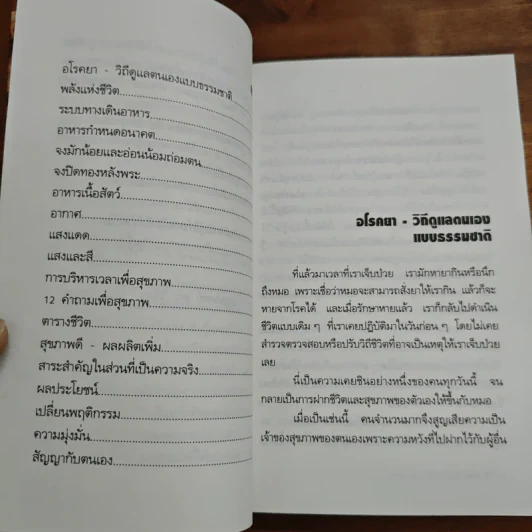 อโรคยา - วิถีดูแลตนเองแบบธรรมชาติ
พลังแห่งชีวิต
ระบบทางเดินอาหาร
อาหารกำหนดอนาคต
จงมักน้อยและอ่อนน้อมถ่อมตน
จงปิดทองหลังพระ
อาหารเนื้อสัตว์
อากาศ
แสงแดด
แสงและสี
การบริหารเวลาเพื่อสุขภาพ
12 คำถามเพื่อสุขภาพ
ตารางชีวิต
สุขภาพดี - ผลผลิตเพิ่ม
สาระสำคัญในส่วนที่เป็นความจริง
ผลประโยชน์
เปลี่ยนพฤติกรรม
ความมุ่งมั่น
สัญญากับตนเอง
อโรคยา - วิถีดูแลตนเอง
แบบธรรมชาติ
ที่แล้วมาเวลาที่เราเจ็บป่วย เรามักหายากินหรือนึก
ถึงหมอ เพราะเชื่อว่าหมอจะสามารถสั่งยาให้เรากิน แล้วก็จะ
หายจากโรคได้ และเมื่อรักษาหายแล้ว เราก็กลับไปดำเนิน
ชีวิตแบบเดิม ๆ ที่เราเคยปฏิบัติมาในวันก่อน ๆ โดยไม่เคย
สำรวจตรวจสอบหรือปรับวิถีชีวิตที่อาจเป็นเหตุให้เราเจ็บป่วย
เลย
นี่เป็นความเคยชินอย่างหนึ่งของคนทุกวันนี้ จน
กลายเป็นการฝากชีวิตและสุขภาพของตัวเองให้ขึ้นกับหมอ
เมื่อเป็นเช่นนี้ คนจำนวนมากจึงสูญเสียความเป็น
เจ้าของสุขภาพของตนเองเพราะความหวังที่ไปฝากไว้กับผู้อื่น